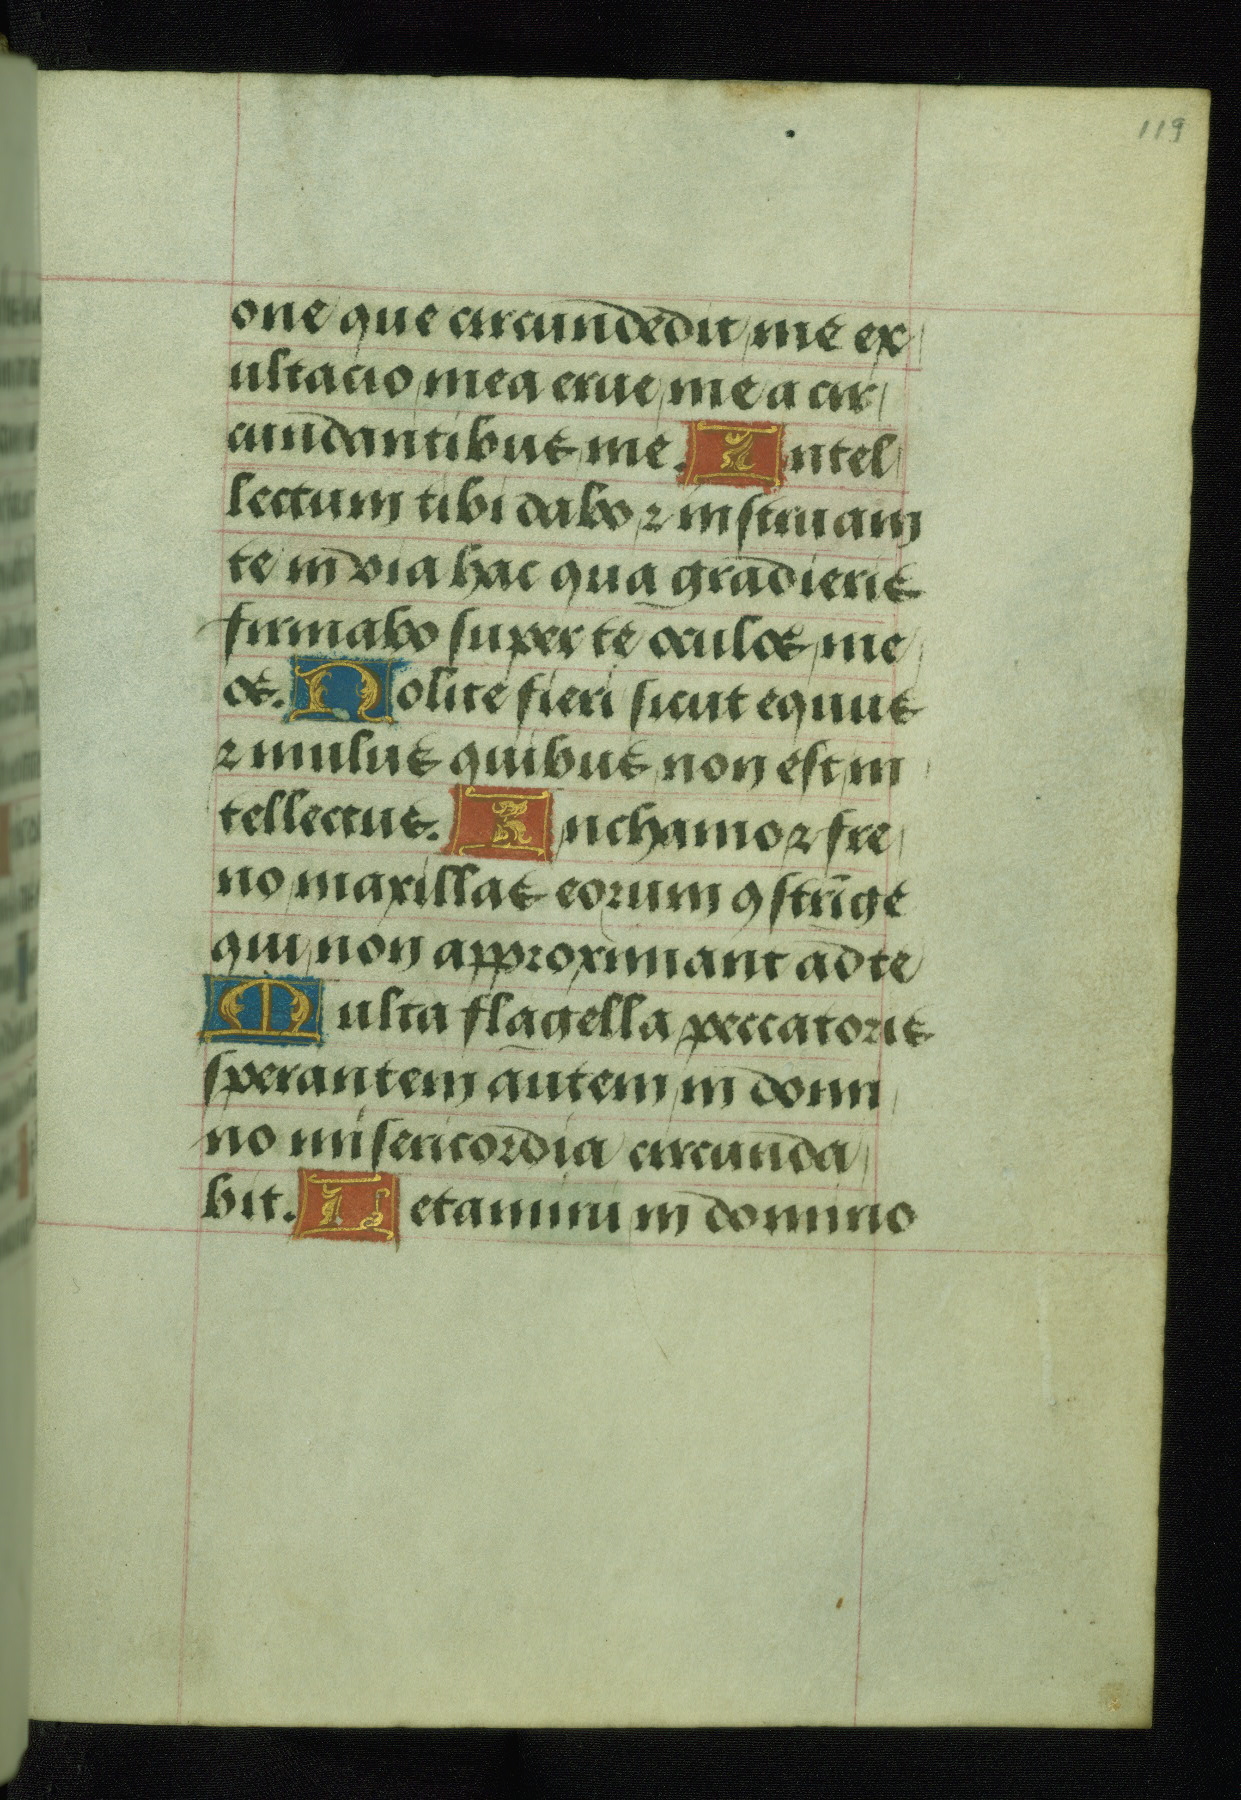 119
one que circundedit me ex
ultacio mea erue me a cir
cundantibus me. Intel
lectum tibi dabo ⁊ instruam
te in via hac qua gradieris
firmabo super te oculos me
os. Nolite fieri sicut equus
⁊ mulus quibus non est in
tellectus. In chamo ⁊ fre
no maxillas eorum ꝯstrīge
qui non approximant ad te
Multa flagella peccatoris
sperantem autem in domi
no misericordia circunda
bit. Letamini in domino